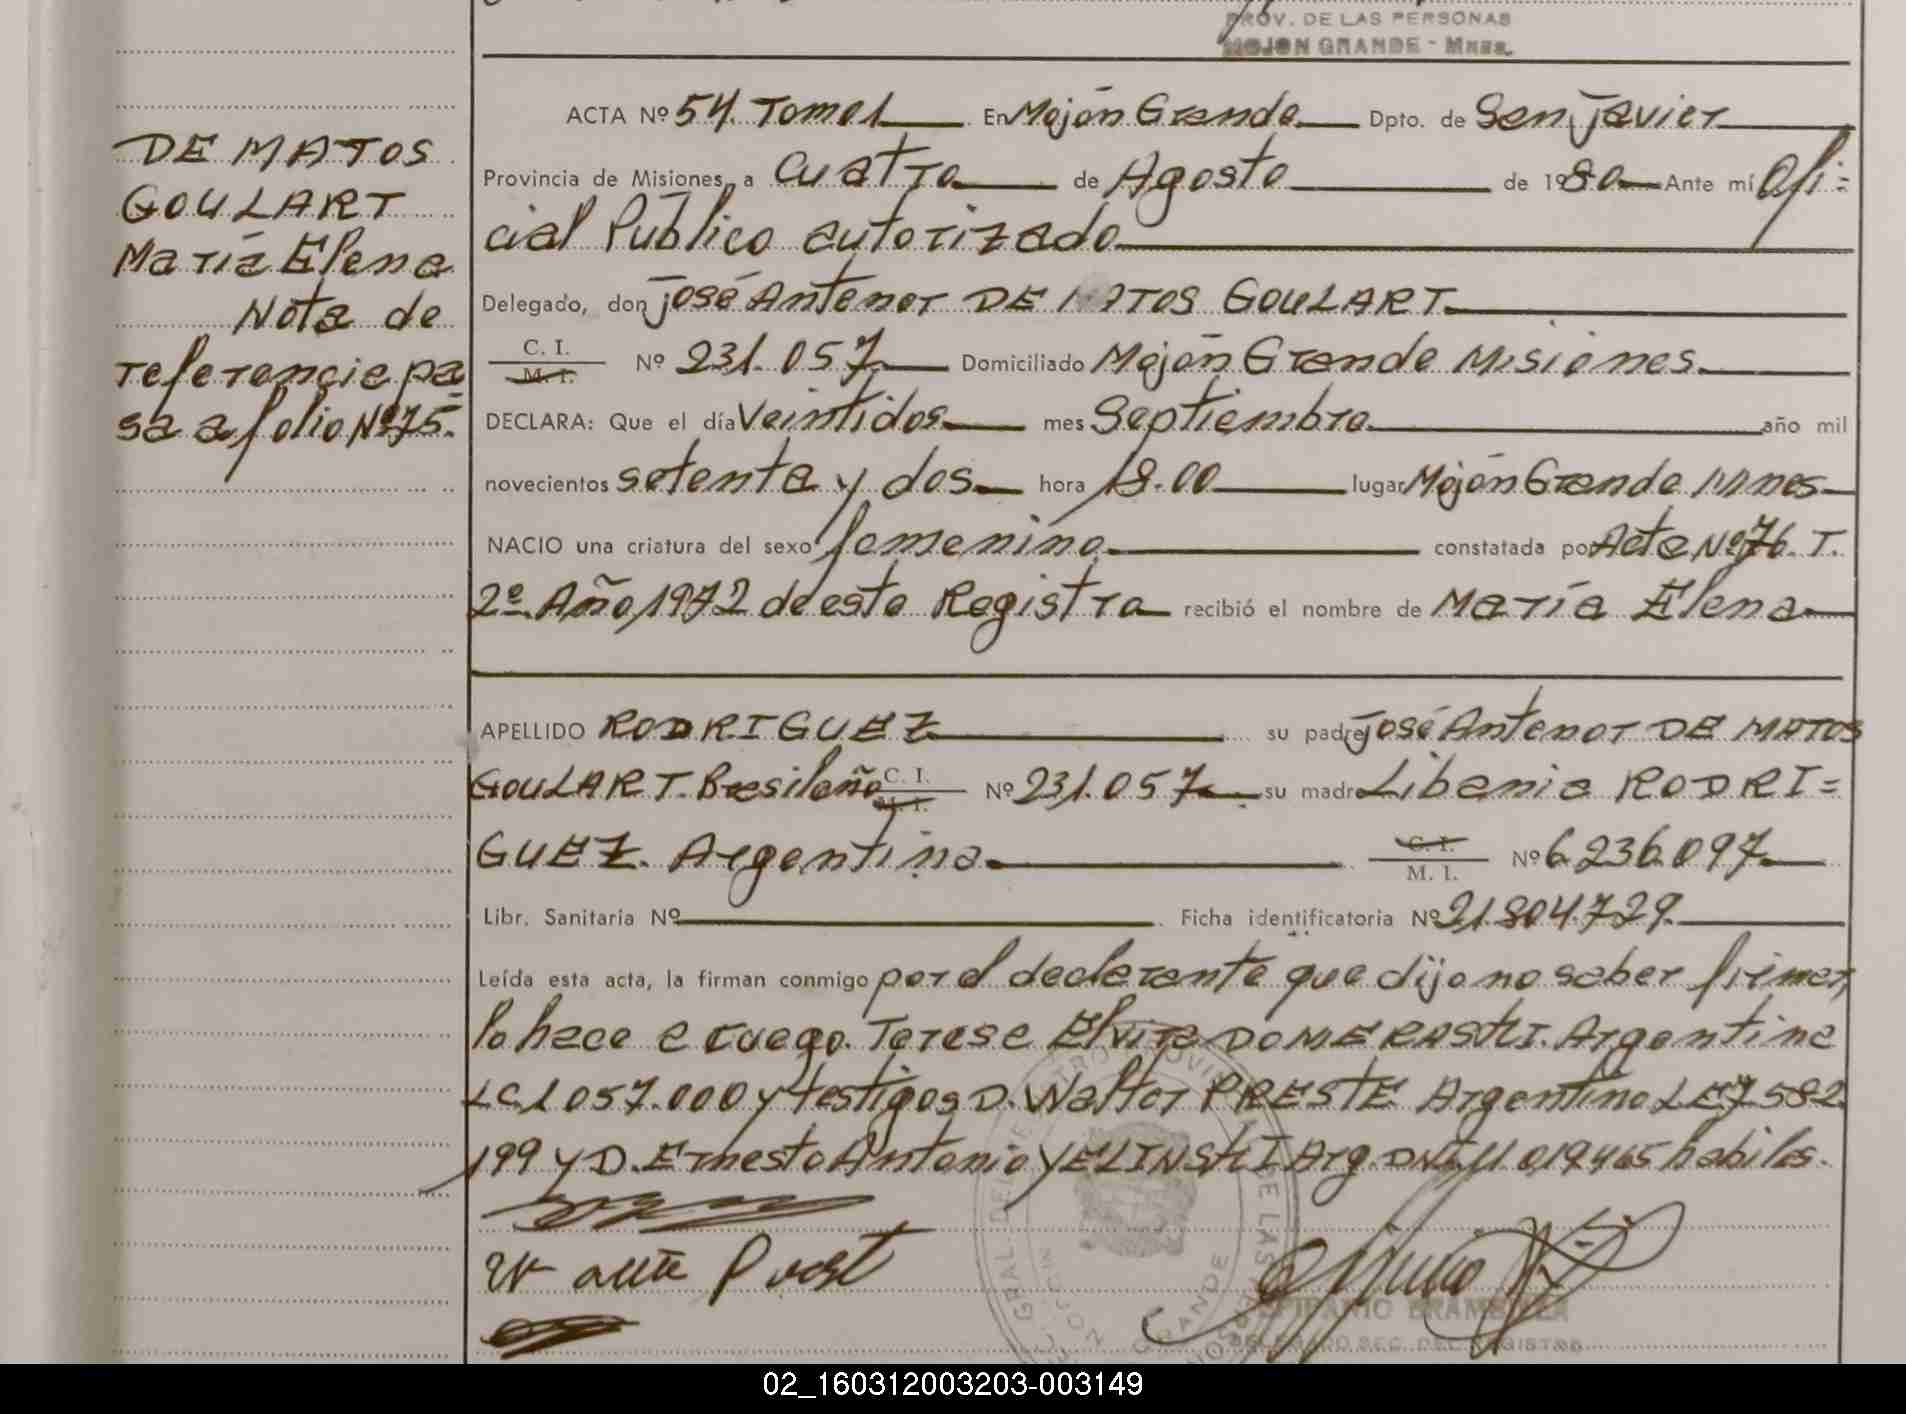 PROV. DE LAS PERSONAS
MOJON GRANDE - Mnes.
ACTA Nº 54. Tomo 1 En Mojón Grande Dpto. de San Javier
Provincia de Misiones, a cuatro de Agosto de 1980 Ante mí Ofi=
cial Público autorizado
Delegado, don José Antenor DE MATOS GOULART
C. I.
M. I.
Nº 231.057 Domiciliado Mojón Grande Misiones
DECLARA: Que el día Veintidos mes Septiembre año mil
novecientos setenta y dos hora 18.00 lugar Mojón Grande Mnes
NACIO una criatura del sexo femenino constatada por Acta Nº 76. T.
2º. Año 1972 de este Registro recibió el nombre de María Elena
APELLIDO RODRIGUEZ su padre José Antenor DE MATOS
GOULART. Brasileño C. I.
M. I.
Nº 231.057 su madre Libania RODRI=
GUEZ. Argentina C. I.
M. I.
Nº 6.236.097
Libr. Sanitaria Nº Ficha identificatoria Nº 21.804.729.
Leída esta acta, la firman conmigo por el declarante que dijo no saber firmar,
lo hace a ruego. Teresa Elvira DOMERASKI. Argentina
LC 1 057.000 y testigos D. Walter PRESTE Argentino LE 7 582
199 y D. Ernesto Antonio YELINSKI Arg. DNI 11.019.465 habiles.
DE MATOS
GOULART
María Elena
Nota de
referencia pa
sa a folio Nº 75.
DELEGADO SEC. DEL REGISTRO
02_160312003203-003149